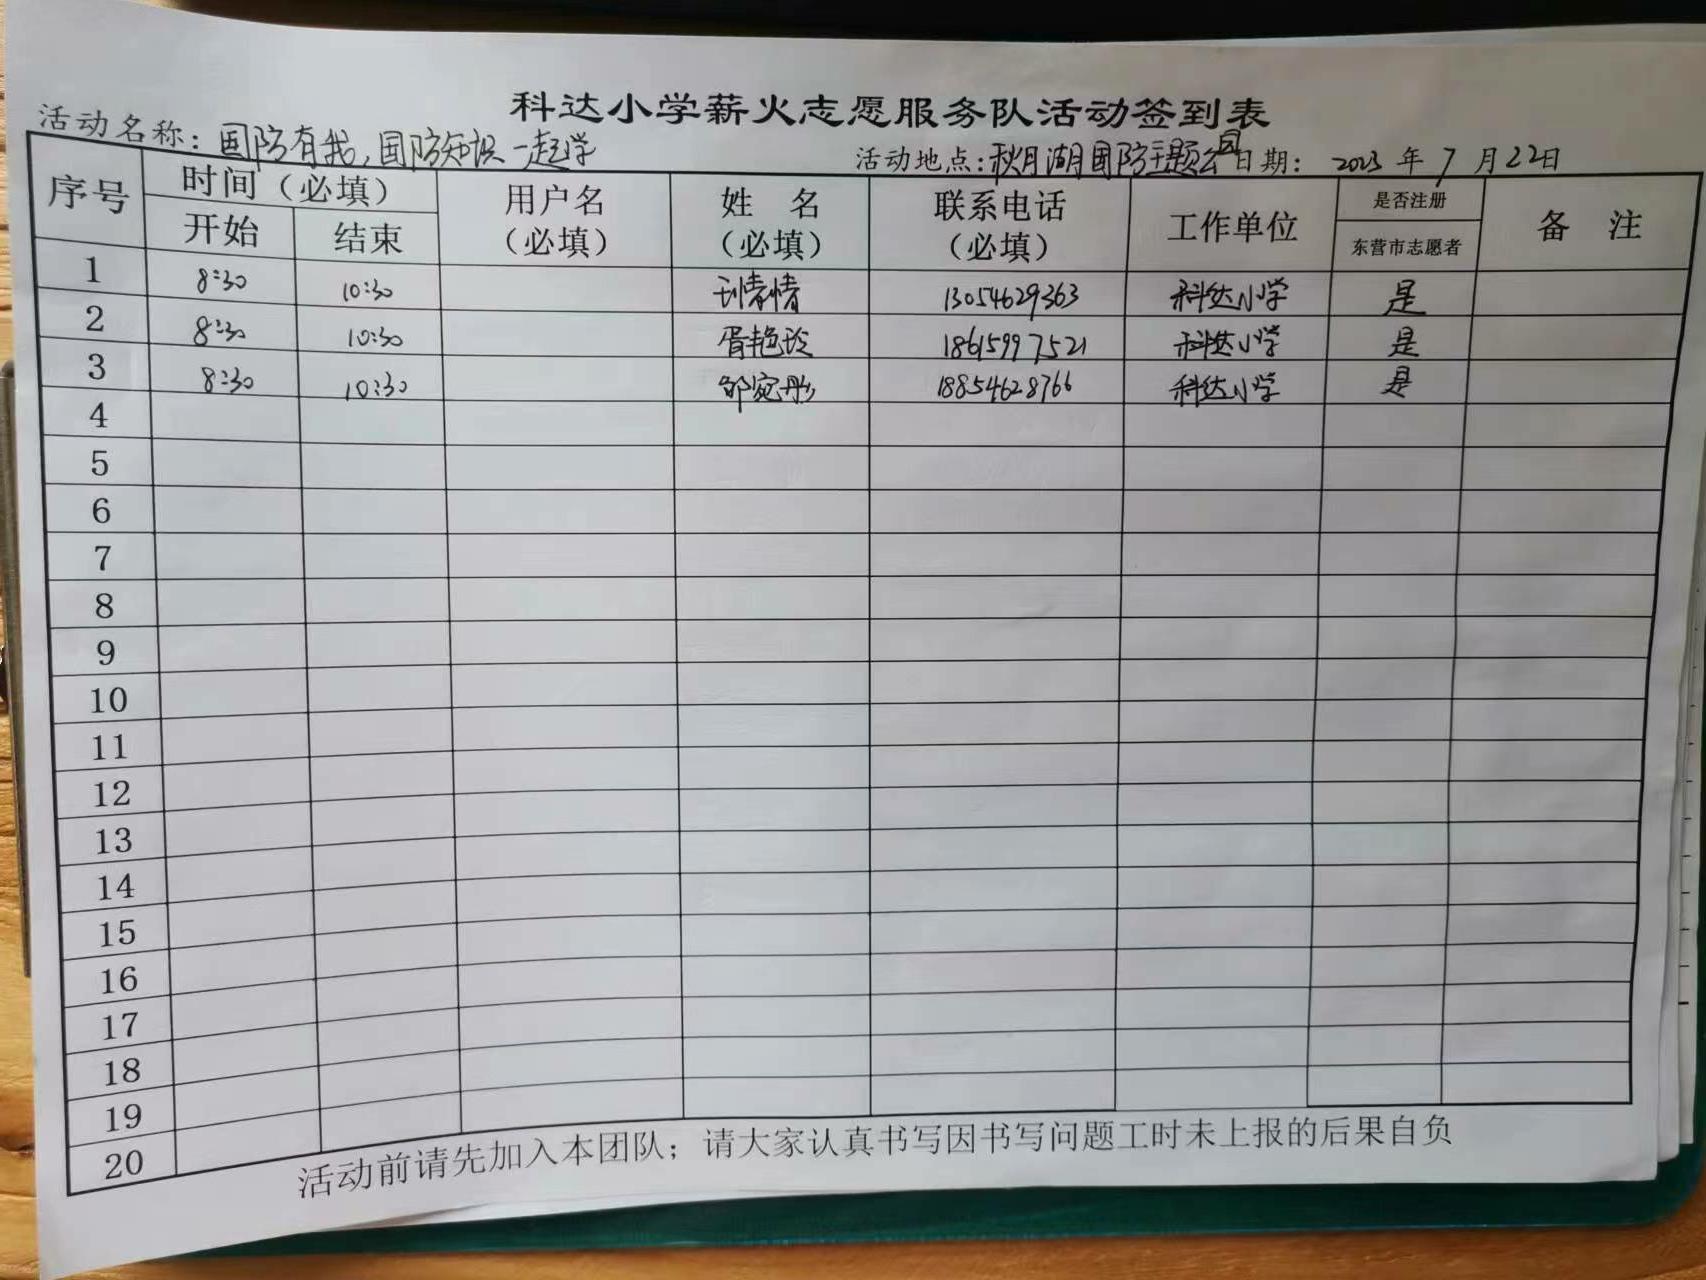 科达小学薪火志愿服务队活动签到表
活动名称：国防有我，国防知识一起学 活动地点：秋月湖国防主题公园 日期： 2023 年 7 月 22日
序号 时间（必填） 用户名（必填） 姓 名（必填） 联系电话（必填） 工作单位 是否注册东营市志愿者 备 注
开始 结束
1 8:30 10:30 刘倩倩 13054629363 科达小学 是
2 8:30 10:30 胥艳玲 18615997521 科达小学 是
3 8:30 10:30 邹宛彤 18854628766 科达小学 是
4
5
6
7
8
9
10
11
12
13
14
15
16
17
18
19
20
活动前请先加入本团队；请大家认真书写因书写问题工时未上报的后果自负